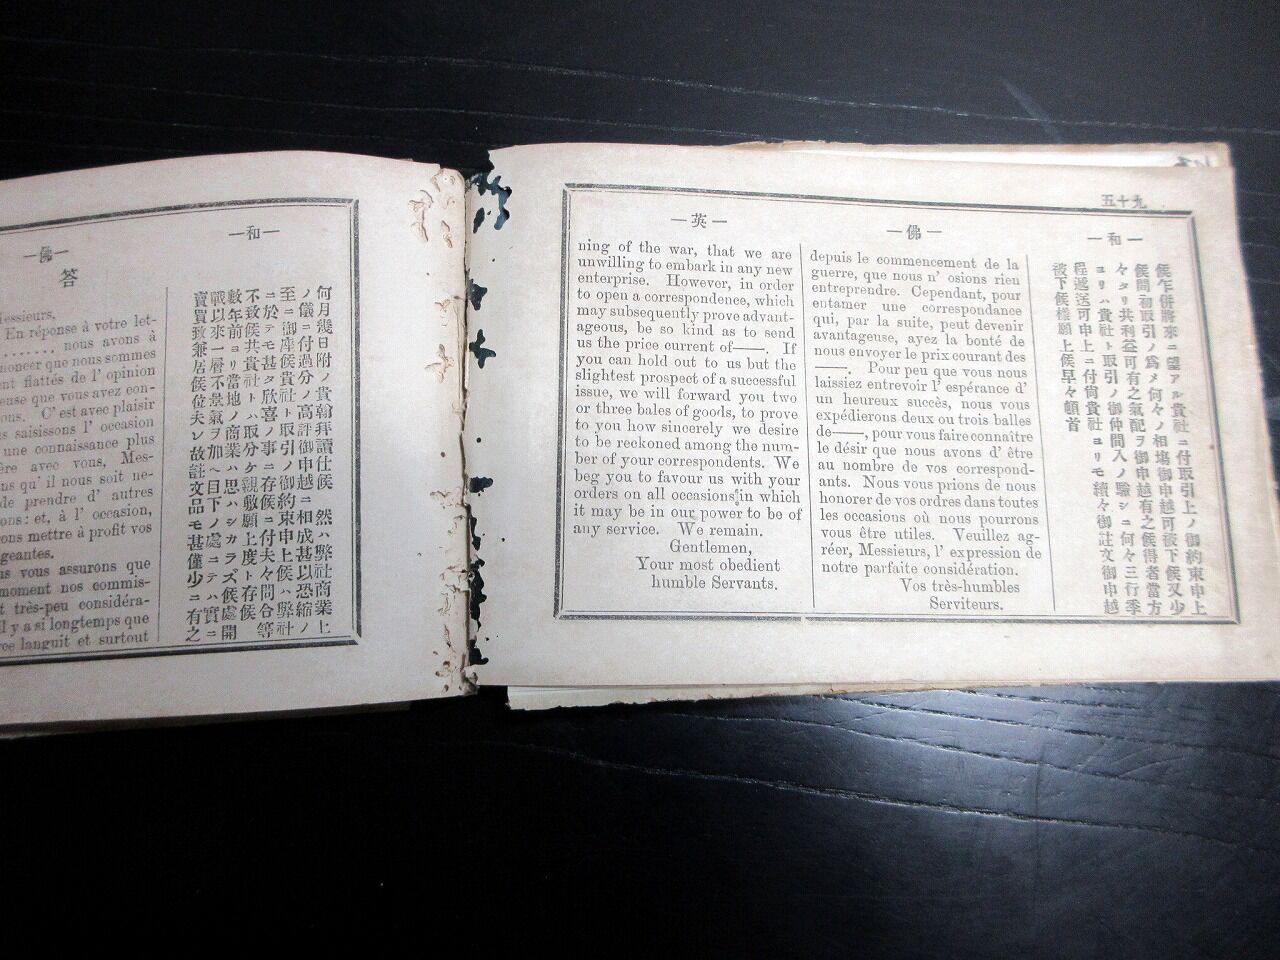 五十九
—英—
ning of the war, that we are
unwilling to embark in any new
enterprise. However, in order
to open a correspondence, which
may subsequently prove advant-
ageous, be so kind as to send
us the price current of——. If
you can hold out to us but the
slightest prospect of a successful
issue, we will forward you two
or three bales of goods, to prove
to you how sincerely we desire
to be reckoned among the num-
ber of your correspondents. We
beg you to favour us with your
orders on all occasions in which
it may be in our power to be of
any service. We remain.
Gentlemen,
Your most obedient
humble Servants.
—佛—
depuis le commencement de la
guerre, que nous n' osions rien
entreprendre. Cependant, pour
entamer une correspondance
qui, par la suite, peut devenir
avantageuse, ayez la bonté de
nous envoyer le prix courant des
——. Pour peu que vous nous
laissiez entrevoir l' espérance d'
un heureux succès, nous vous
expédierons deux ou trois balles
de——, pour vous faire connaître
le désir que nous avons d' être
au nombre de vos correspond-
ants. Nous vous prions de nous
honorer de vos ordres dans toutes
les occasions où nous pourrons
vous être utiles. Veuillez ag-
réer, Messieurs, l' expression de
notre parfaite considération.
Vos très-humbles
Serviteurs.
—和—
候乍併將來ニ望アル貴社ニ付取引上ノ御約束申上
候間初取引ノ爲メ何々ノ相塲御申越可被下候又少
々タリ共利益可有之氣配ヲ御申越有之候得者當方
ヨリハ貴社ト取引ノ御仲間入ノ驗シニ何々三行季
程遞送可申上ニ付尙貴社ヨリモ續々御註文御申越
被下候樣願上候早々頓首
—佛—
答
Messieurs,
En réponse à votre let-
........, nous avons à
noncer que nous sommes
nt flattés de l' opinion
euse que vous avez con-
ous. C' est avec plaisir
s saisissons l' occasion
une connaissance plus
ère avec vous, Mes-
ns qu' il nous soit ne-
de prendre d' autres
ons: et, à l' occasion,
ons mettre à profit vos
geantes.
us vous assurons que
moment nos commis-
t très-peu considéra-
il y a si longtemps que
rce languit et surtout
—和—
何月幾日附ノ貴翰拜讀仕候 然ハ弊社商業上
ノ儀ニ付過分ノ高評御申越ニ相成甚以恐縮ノ
至ニ御座候貴社ト取引ノ御約束申上候ハ弊社
ニ於テモ甚タ欣喜ノ事ニ存候ニ付夫々問合等
不致候共貴社トハ取分ケ親敷願上度ト存候
數年前ヨリ當地ノ商業ハ思ハシカラズ候處開
戰以來一層不景氣ヲ加へ目下ノ處ニテハ實ニ
賣買致兼居候位夫レ故註文品モ甚僅少ニ有之